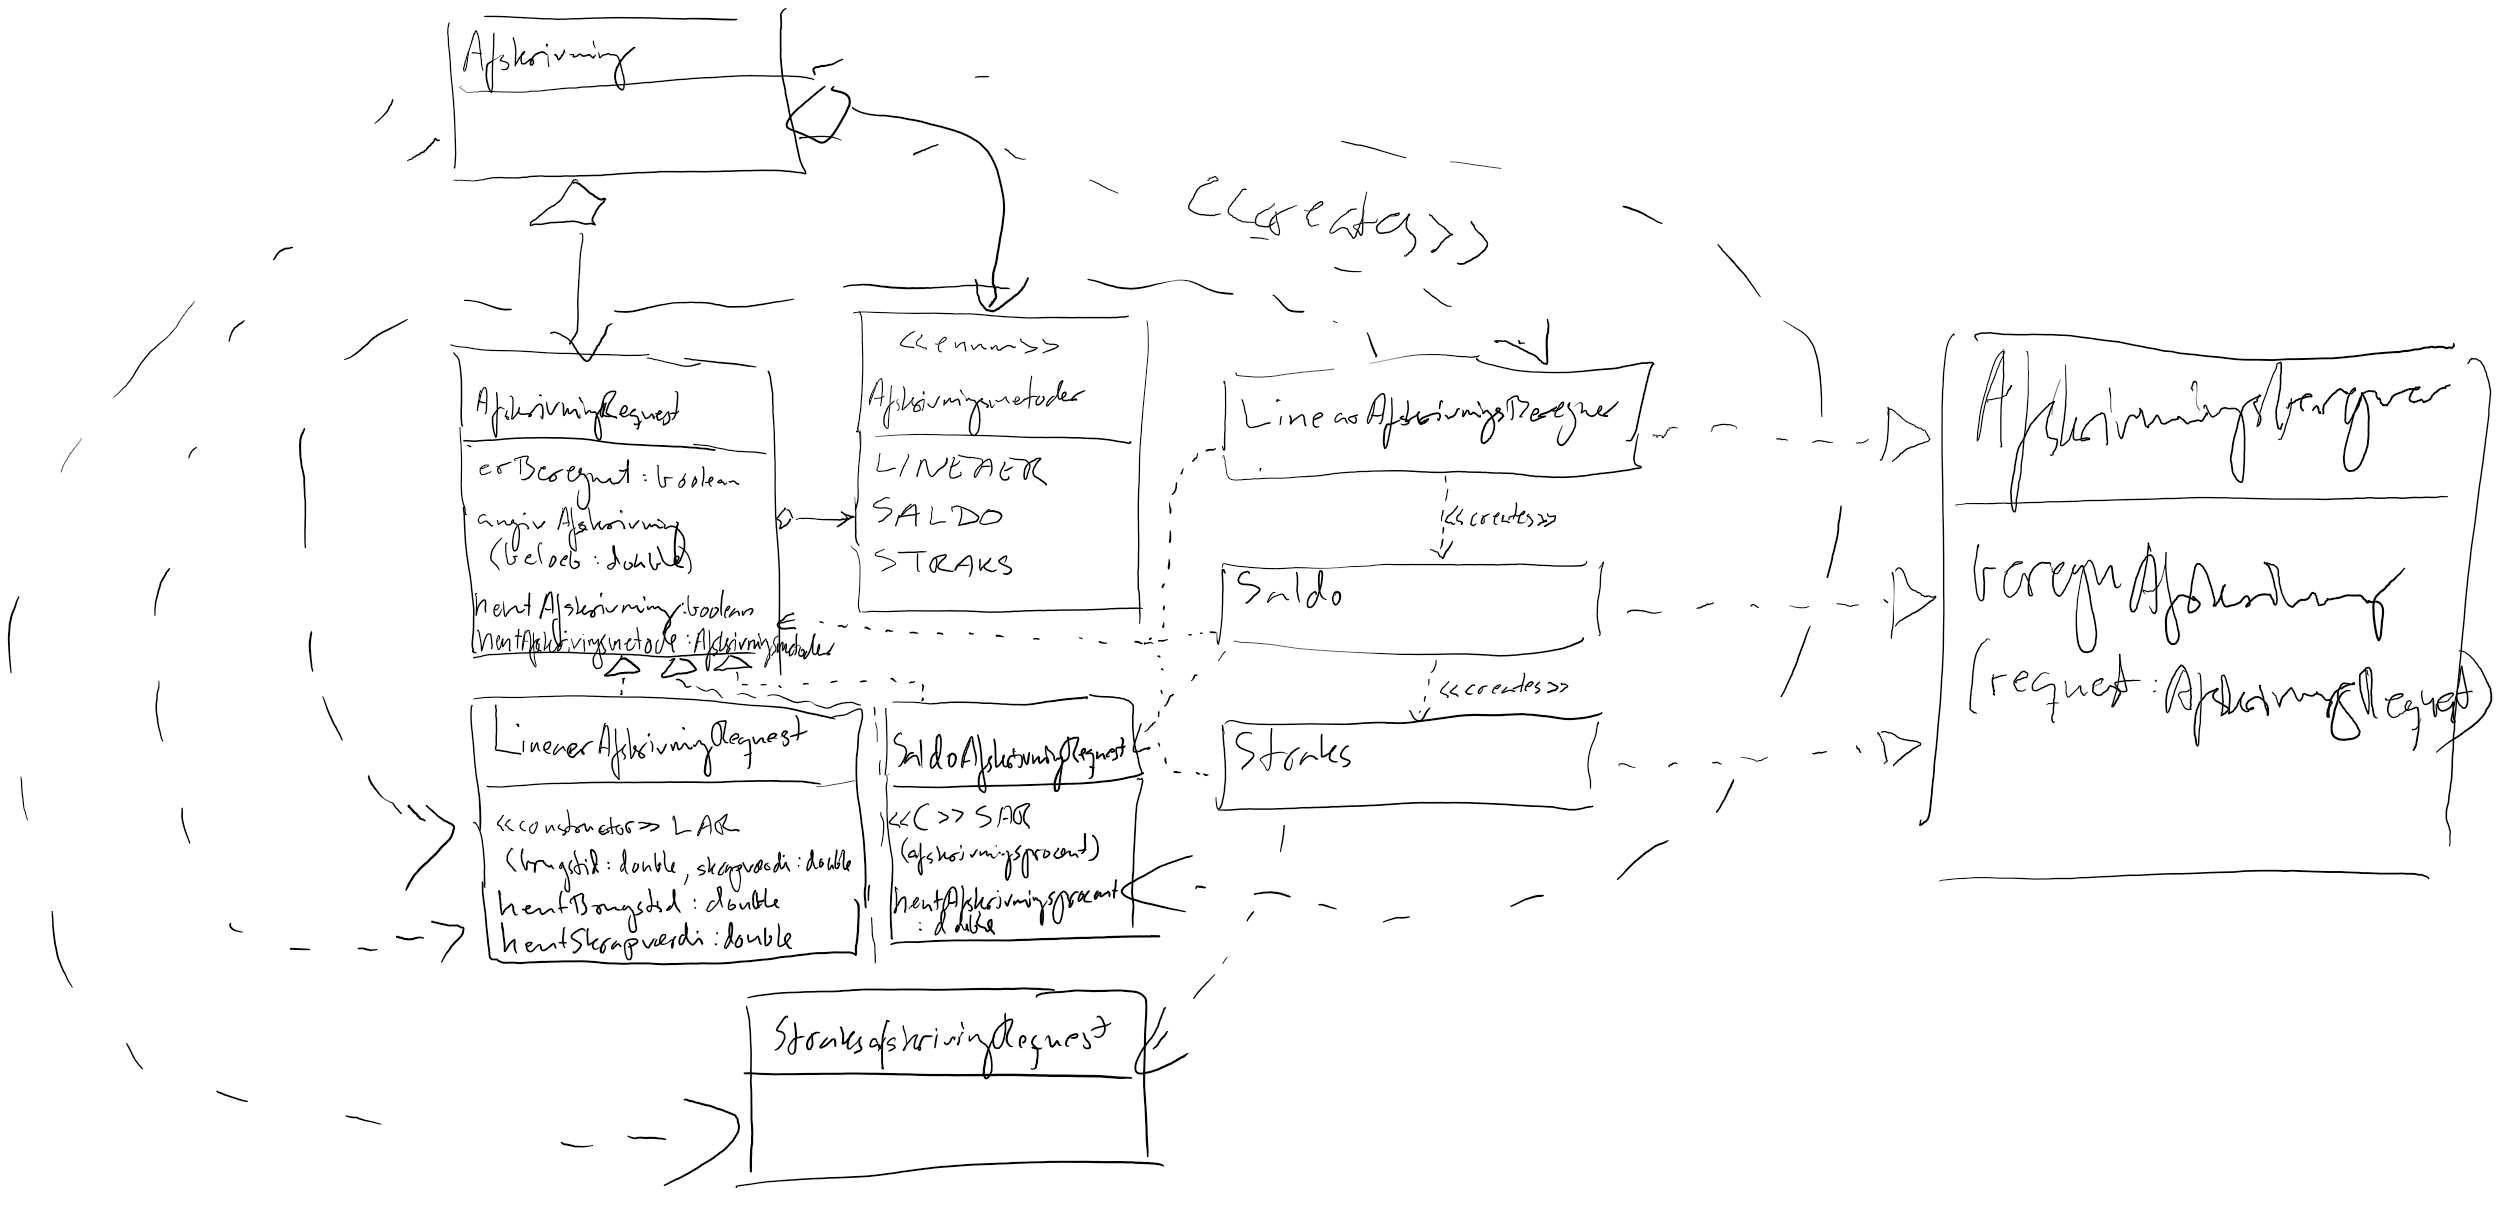 Afskrivning
<<creates>>
AfskrivningRequest
erBeregnet : boolean
angiv Afskrivning
(beloeb : double)
hentAfskrivning : boolean
hentAfskrivingsmetode : Afskrivningsmetoder
<<enum>>
Afskrivningsmetoder
LINEAER
SALDO
STRAKS
LinearAfskrivningsBeregner
<<creates>>
Saldo
<<creates>>
Straks
Afskrivningsberegner
beregnAfskrivning
(request : AfskrivningRequest)
LinenerAfskrivningRequest
<<constructor>> LAR
(brugstid : double, skrapvaerdi : double
hentBrugstid : double
hentSkrapvaerdi : double
SaldoAfskrivningRequest
<<C>> SAR
(afskrivningsprocent)
hentAfskrivningsprocent
: double
StraksafskrivingRequest